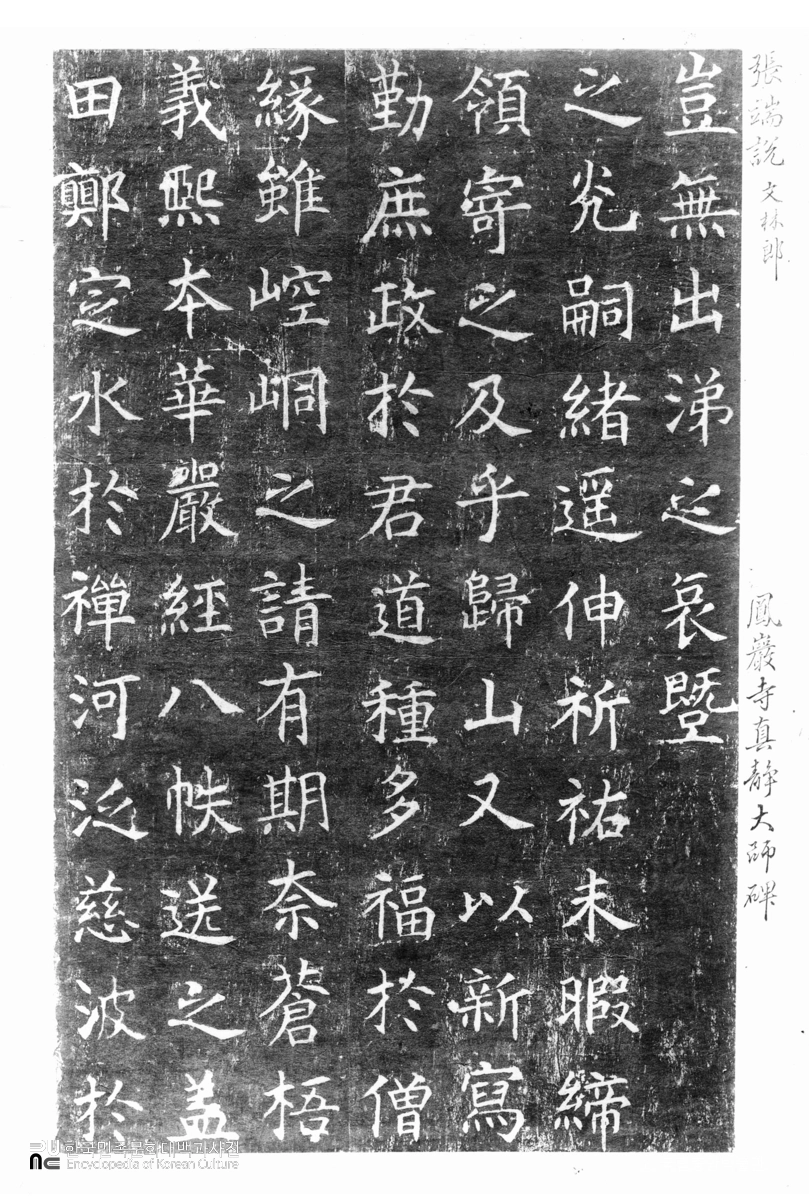 張端說 文林郎
鳳巖寺真靜大師碑
豈無出涕之哀曁
之光嗣緒遥伸祈祐未暇締
領寄之及乎歸山又以新寫
勤庶政於君道種多福於僧
緣雖崆峒之請有期奈蒼梧
義熙本華嚴經八帙送之盖
田鄭定水於禪河泛慈波於
한국민족문화대백과사전
Encyclopedia of Korean Culture